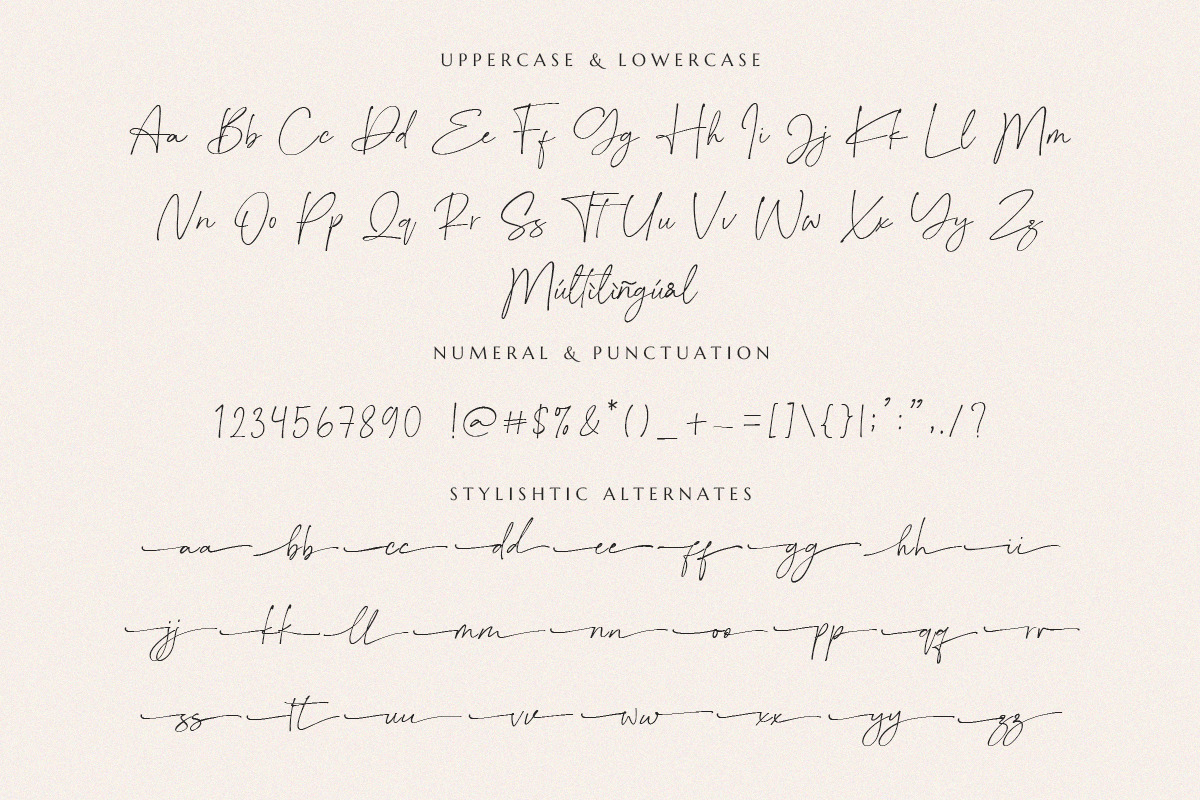 UPPERCASE & LOWERCASE
Aa Bb Cc Dd Ee Ff Gg Hh Ii Jj Kk Ll Mm
Nn Oo Pp Qq Rr Ss Tt Uu Vv Ww Xx Yy Zz
Múltìlìñgúål
NUMERAL & PUNCTUATION
1234567890 !@#$%&*()_+-=[]\{}|;':",./?
STYLISHTIC ALTERNATES
aa bb cc dd ee ff gg hh ii
jj kk ll mm nn oo pp qq rr
ss tt uu vv ww xx yy zz